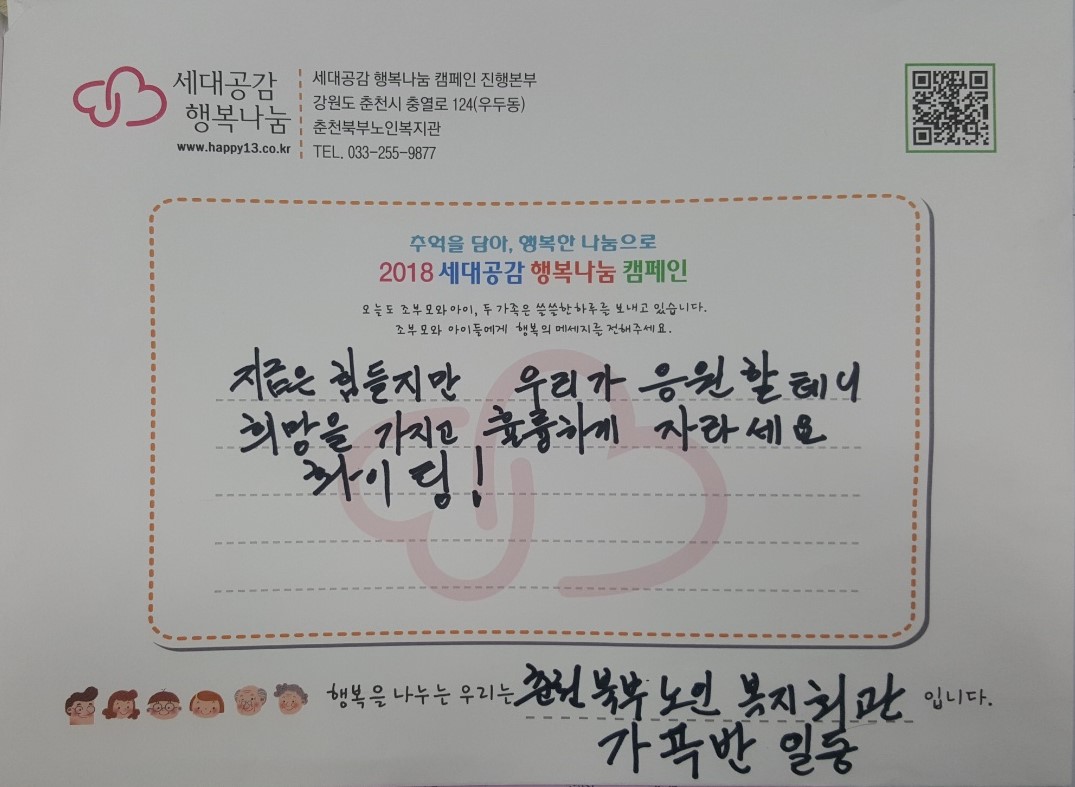 세대공감
행복나눔
www.happy13.co.kr
세대공감 행복나눔 캠페인 진행본부
강원도 춘천시 충열로 124(우두동)
춘천북부노인복지관
TEL. 033-255-9877
추억을 담아, 행복한 나눔으로
2018 세대공감 행복나눔 캠페인
오늘도 조부모와 아이, 두 가족은 쓸쓸한 하루를 보내고 있습니다.
조부모와 아이들에게 행복의 메세지를 전해주세요.
지금은 힘들지만 우리가 응원할테니
희망을 가지고 훌륭하게 자라세요
화이팅!
행복을 나누는 우리는 춘천북부노인 복지회관 입니다.
가곡반 일동